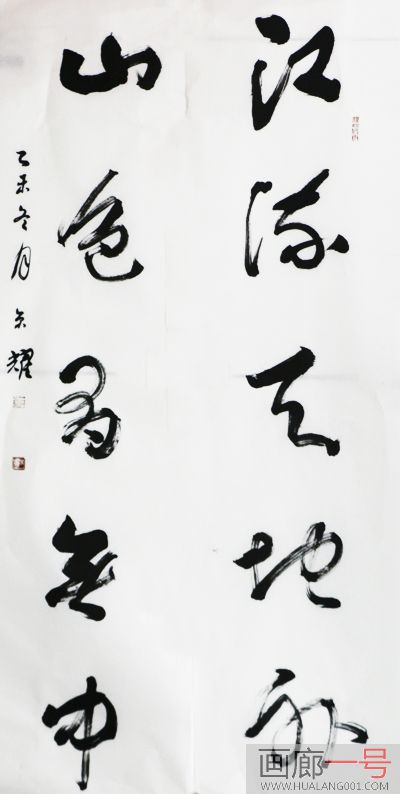 江流天地外
山色有無中
乙未冬月 矢耀
画廊一号
WWW.HUALANG001.COM